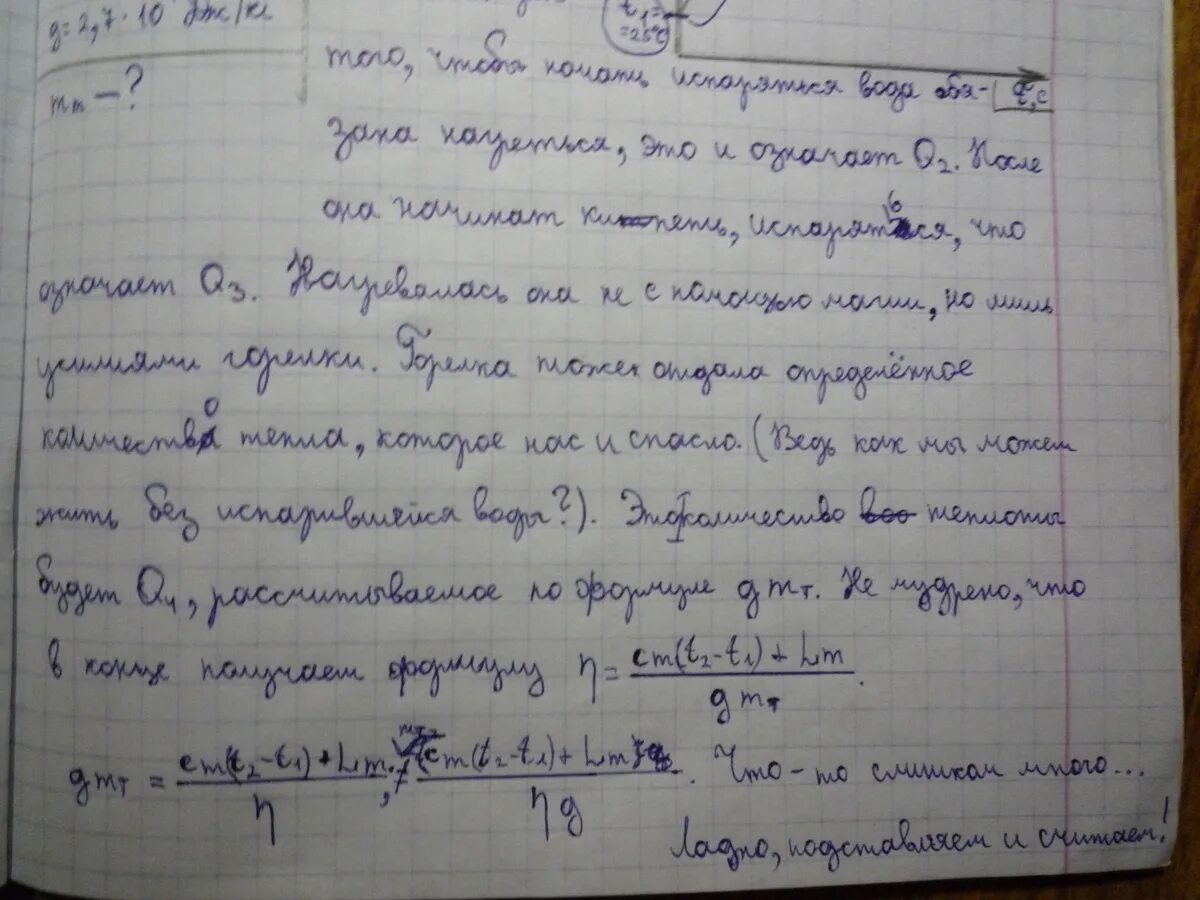 q=2,7·10 Дж/кг
t₁=
=25°С
mт — ?
того, чтобы начать испаряться вода обя-
t, с
зана нагреться, это и означает Q₂. После
она начинат кипеть, испаряться, что
означает Q₃. Нагревалась она не с помощью магии, но лишь
усилиями горелки. Горелка тожек отдала определённое
количество тепла, которое нас и спасло. (Ведь как мы можем
жить без испарившейся воды?). Это количество теплоты
будет Q₄, рассчитываемое по формуле qmт. Не мудрено, что
в конце получаем формулу η = (cm(t₂-t₁) + Lm)/(qmт).
qmт = (cm(t₂-t₁) + Lm)/η, mт = (cm(t₂-t₁) + Lm)/(ηq). Что-то слишком много...
Ладно, подставляем и считаем!